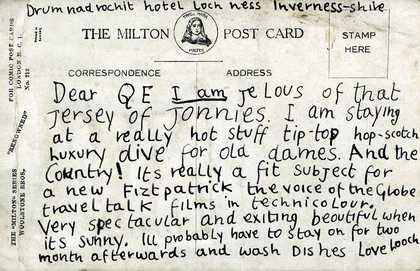 Drumnadrochit hotel Loch ness Inverness-shire
THE MILTON POST CARD
STAMP
HERE
CORRESPONDENCE ADDRESS
Dear QE I am jelous of that
jersey of Jonnies. I am staying
at a really hot stuff tip-top hop-scotch
luxury dive for old dames. And the
Country! Its really a fit subject for
a new Fiztpatrick the voice of the Globe
travel talk films in technicolour.
Very spectacular and exiting beautiful when
its sunny. Ill probably have to stay on for two
month afterwards and wash Dishes Love looch
FOR COMIC POST CARDS
LONDON E.C.1
No. 212
"RENOWNED"
THE "MILTON" SERIES
WOOLSTONE BROS.